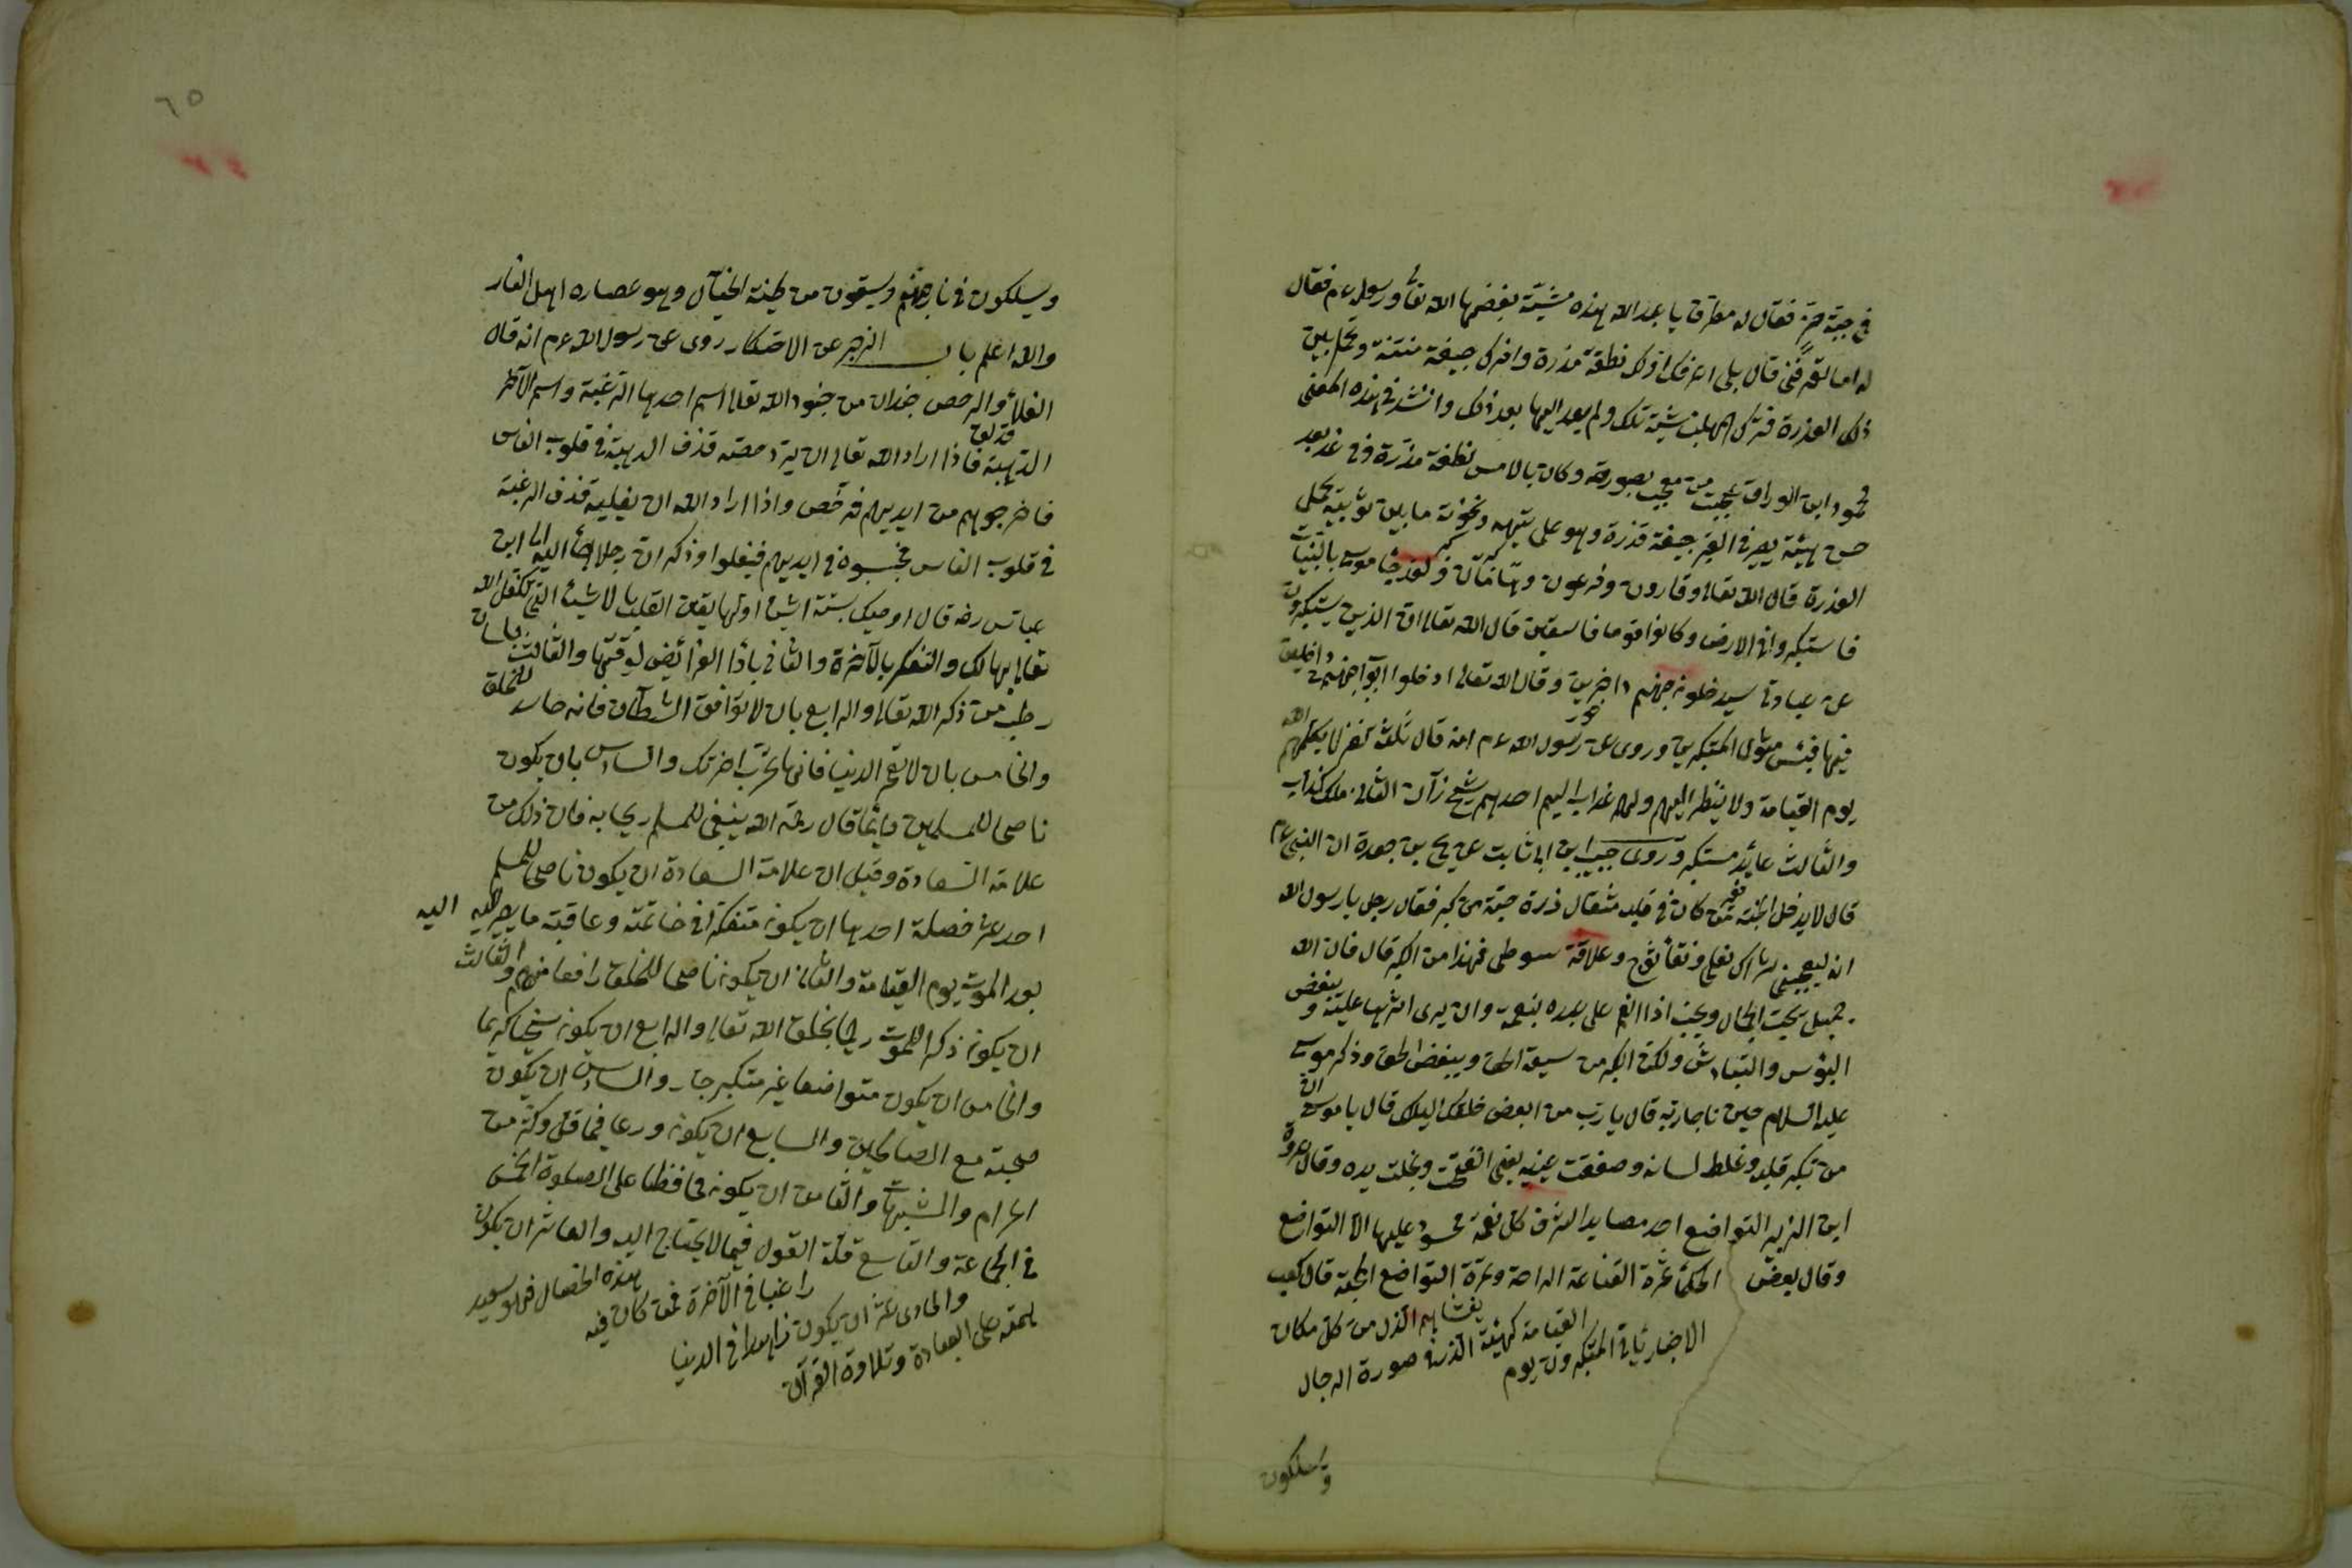 في جبة خز فقال له مطرف يا عبد الله هذه مشية يبغضها الله تعا ورسوله عم فقال
له اما تعرفني قال بلى اعرفك اولك نطفة مذرة واخرك جيفة منتنة وتحمل بين
ذلك العذرة فترك المهلب مشية تلك ولم يعد اليها بعد ذلك وانشد في هذه المعنى
محمود ابن الوراق عجبت من معجب بصورته وكان بالامس نطفة مذرة وفي غد بعد
حسن هيئته يصير في القبر جيفة قذرة وهو على تيهه ونخوته ما بين ثوبيه يحمل
العذرة قال الله تعالى وقارون وفرعون وهامان ولقد جاءهم موسى بالبينات
فاستكبروا في الارض وكانوا قوما فاسقين قال الله تعالى ان الذين يستكبرون
عن عبادتي سيدخلون جهنم داخرين وقال الله تعالى ادخلوا ابواب جهنم خالدين
فيها فبئس مثوى المتكبرين وروى عن رسول الله عم انه قال ثلثة نفر لا يكلمهم الله
يوم القيامة ولا ينظر اليهم ولهم عذاب اليم احدهم شيخ زان الثاني ملك كذاب
والثالث عائد مستكبر وروى حبيب ابن ابي ثابت عن يحيى بن جعدة ان النبي عم
قال لا يدخل الجنة من كان في قلبه مثقال ذرة حبة من كبر فقال رجل يا رسول الله
انه ليعجبني شراك نعلي ونقاء ثوبي وعلاقة سوطي فهذا من الكبر قال فان الله
جميل يحب الجمال ويحب اذا انعم على عبده بنعمة وان يرى اثرها عليه ويبغض
البؤس والتباؤس ولكن الكبر من سفه الحق ويبغض الحق وذكر موسى
عليه السلام حين ناجا ربه قال يا رب من ابغض خلقك اليك قال يا موسى
من تكبر قلبه وغلظ لسانه وصفقت عينيه يعنى وبخلت يده وقال عروة
ابن الزبير التواضع احد مصايد الشرف كل نعمة محسود عليها الا التواضع
وقال بعض الحكما ثمرة القناعة الراحة وثمرة التواضع المحبة قال كعب
الاخبار يأتي المتكبرون يوم القيامة كهيئة الذر في صورة الرجال يغشاهم الذل من كل مكان
ويسلكون
٦٥
ويسلكون في نار جهنم ويسقون من طينة الخبال وهو عصاره اهل النار
والله اعلم باب الزجر عن الاحتكار روى عن رسول الله عم انه قال
الغلا والرخص جندان من جنود الله تعالى اسم احدها الرغبة واسم الآخر
الرهبة فاذا اراد الله تعالى ان يرخصه قذف الرهبة في قلوب الناس
فاخرجوهم من ايديهم فترخص واذا اراد الله ان يغليه قذف الرغبة
في قلوب الناس فحبسوه في ايديهم فيغلوا وذكر ان رجلا جاء الى ابن
عباس رضه قال اوصيك بستة اشياء اولها يقين القلب بالاشياء التي تكفل الله
تعالى بها لك والتفكر بالآخرة والثاني باداء الفرائض لوقتها والثالث بلسان
رطب من ذكر الله تعالى والرابع بان لا توافق الشيطان فانه حاسد للخلق
والخامس بان لا تعمر الدنيا فانها تخرب اخرتك والسادس بان يكون
ناصحا للمسلمين دائما قال رحمه الله ينبغي للمسلم فان ذلك من
علامة السعادة وقيل ان علامة السعادة ان يكون ناصحا للمسلم
احد عشر خصلة احدها ان يكون متفكرا في خاتمته وعاقبته ما يصير اليه
بعد الموت يوم القيامة والثاني ان يكون ناصحا للخلق رافعا منهم والثالث
ان يكون ذكر الموت رحيما بخلق الله تعالى والرابع ان يكون سخيا كريما
والخامس ان يكون متواضعا غير متكبر جبار والسادس ان يكون
صحبته مع الصالحين والسابع ان يكون ورعا فيما قل وكثر من
الحرام والشبهات والثامن ان يكون محافظا على الصلوة الخمس
في الجماعة والتاسع قلة القول فيما لا يحتاج اليه والعاشر ان يكون
همته على العبادة وتلاوة القرآن والحادى عشر ان يكون زاهدا في الدنيا راغبا في الآخرة فمن كان فيه هذه الخصال فهو سعيد